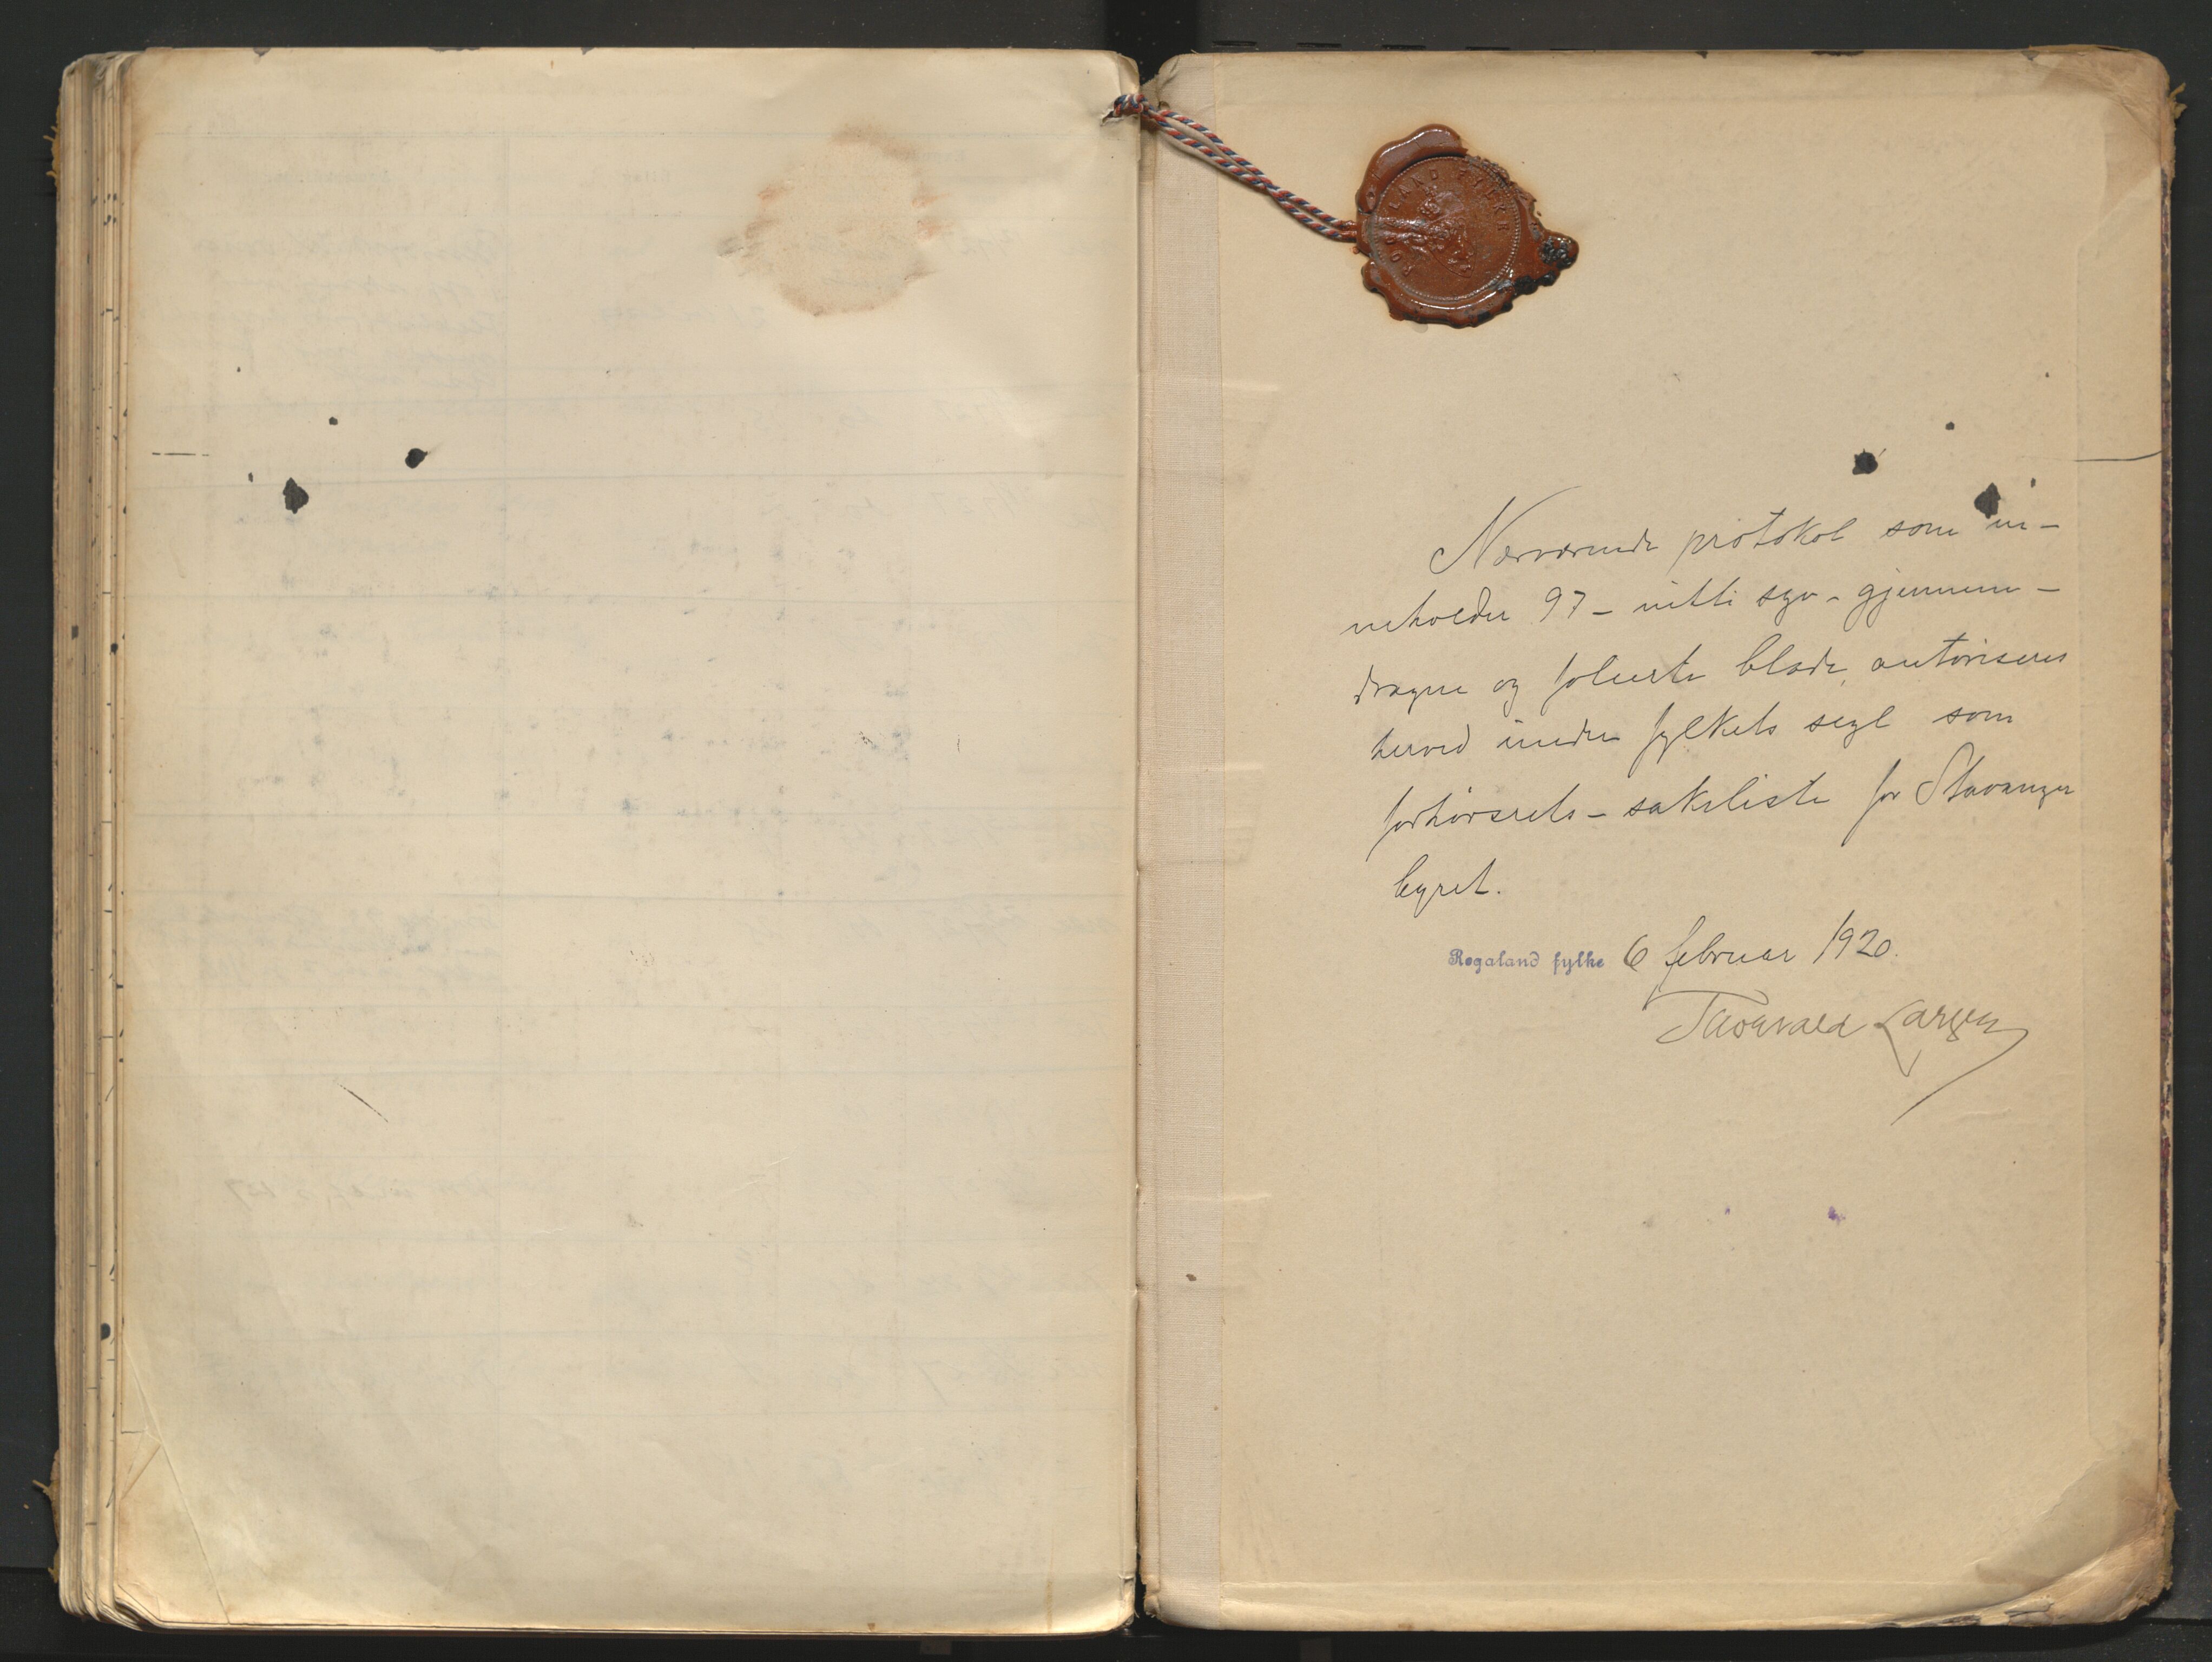 ROGALAND FYLKE
Nærværende protokol som in-
neholder 97 - nitti syv - gjennem-
dragne og folierte blade, autoriseres
herved under fylkets segl som
forhørsrets - saksliste for Stavanger
byret.
Rogaland fylke 6 februar 1920.
Thorvald Larsen